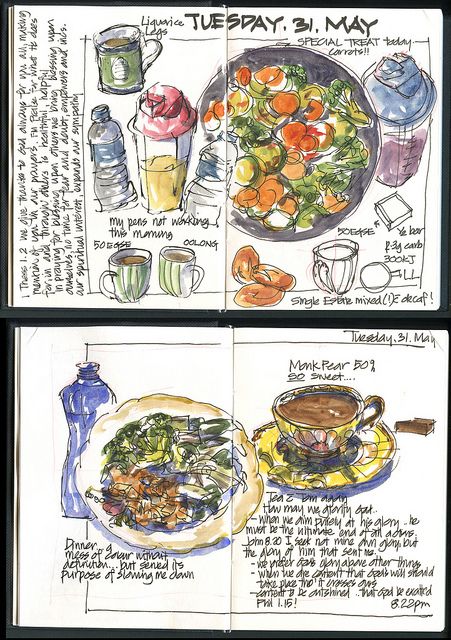 Liquorice
Legs
TUESDAY. 31. MAY
SPECIAL TREAT today
carrots!!
1 Thess 1.2 we give thanks to god always for you all, making
mention of you in our prayers.
for in and through others
In praying for blessing upon others we bring blessing upon
ourselves, no time for fear and doubt, empowers and
our spiritual interest, expands our sympathy
my pens not working
this morning
50EGSE
OOLONG
50EGSE
1/2 bar
300KJ
ALL
Single Estate mixed (!) & decaf!
Tuesday. 31. May
Monk Pear 50g
so sweet....
Dinner
mess of colour without
definition... but served its
purpose of slowing me down
Tea 2 again
How may we glorify God..
- when we aim purely at his glory.. he
must be the ultimate end of all actions.
John 8.50 I seek not mine own glory but
the glory of him that sent me.
- we prefer Gods glory above other things
- when we are content that Gods will should
take place tho' it crosses ours
- content to be outshined.. that God be exalted
Phil 1.15!
8.22pm